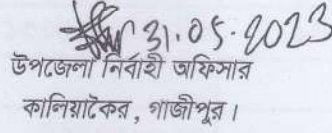 31.05.2023
উপজেলা নির্বাহী অফিসার
কালিয়াকৈর, গাজীপুর।